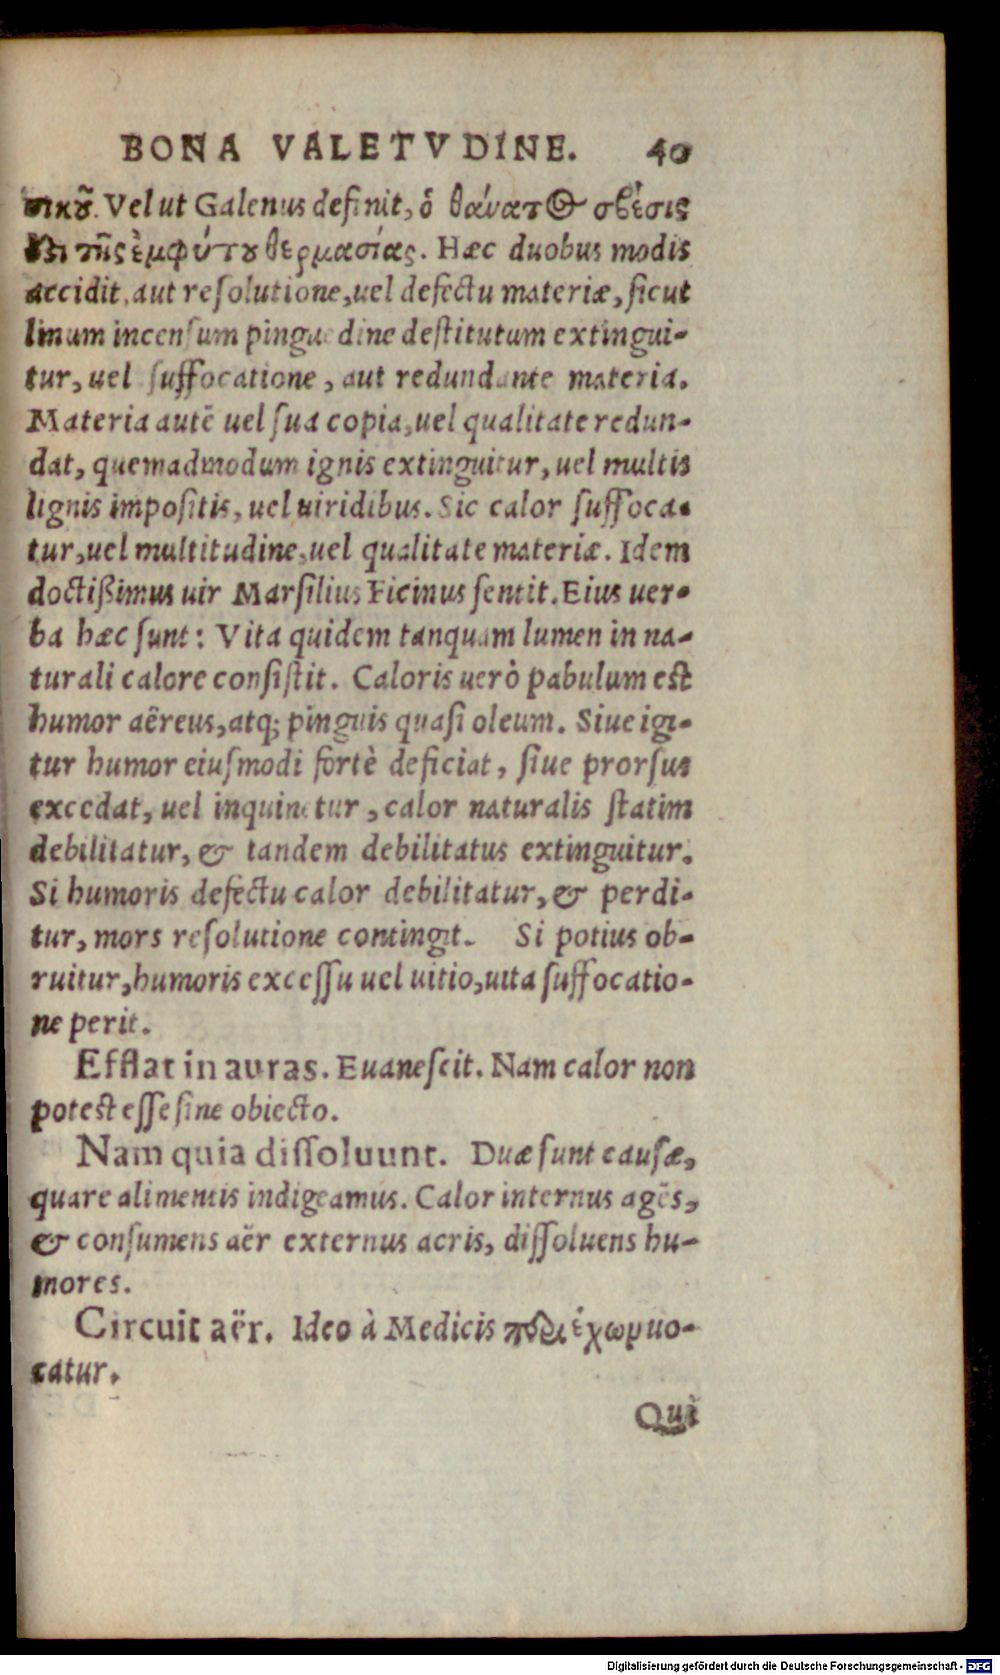 BONA VALETVDINE. 40
σικοῦ. Vel ut Galenus definit, ὁ θάνατος σβέσις
τῆς ἐμφύτου θερμασίας. Hæc duobus modis
accidit, aut resolutione, uel defectu materiæ, sicut
linum incensum pinguedine destitutum extingui-
tur, uel suffocatione, aut redundante materia.
Materia autē uel sua copia, uel qualitate redun-
dat, quemadmodum ignis extinguitur, uel multis
lignis impositis, uel uiridibus. Sic calor suffoca-
tur, uel multitudine, uel qualitate materiæ. Idem
doctißimus uir Marsilius Ficinus sentit. Eius uer-
ba hæc sunt: Vita quidem tanquam lumen in na-
turali calore consistit. Caloris uerò pabulum est
humor aëreus, atq; pinguis quasi oleum. Siue igi-
tur humor eiusmodi fortè deficiat, siue prorsus
excedat, uel inquinetur, calor naturalis statim
debilitatur, & tandem debilitatus extinguitur.
Si humoris defectu calor debilitatur, & perdi-
tur, mors resolutione contingit. Si potius ob-
ruitur, humoris excessu uel uitio, uita suffocatio-
ne perit.
Efflat in auras. Euanescit. Nam calor non
potest esse sine obiecto.
Nam quia dissoluunt. Duæ sunt causæ,
quare alimentis indigeamus. Calor internus agēs,
& consumens aër externus acris, dissoluens hu-
mores.
Circuit aër. Ideo à Medicis περιέχωρ uo-
catur.
Qui
Digitalisierung gefördert durch die Deutsche Forschungsgemeinschaft - DFG